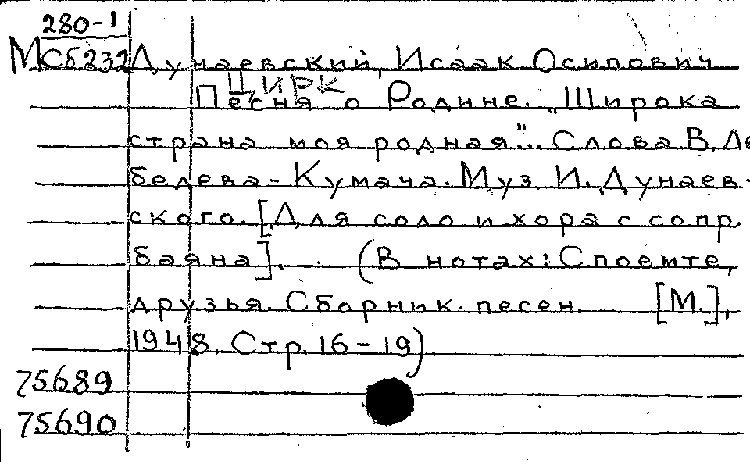 280-1
МСб232 Дунаевский, Исаак Осипович
ЦИРК
Песня о Родине. „Широка
страна моя родная"... Слова В. Ле
бедева-Кумача. Муз. И. Дунаев-
ского. [Для соло и хора с сопр.
баяна]. (В нотах: Споемте,
друзья. Сборник песен. [М.],
1948. Стр. 16-19)
75689
75690